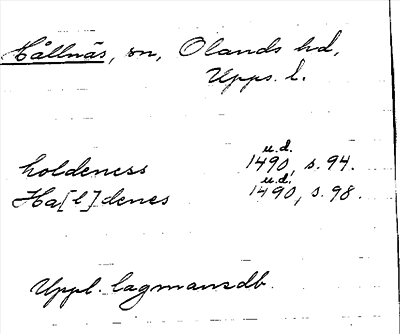 Hållnäs, sn, Olands hd,
Upps. l.
holdeness 1490 u.d., s. 94.
Ha[l]denes 1490 u.d., s. 98.
Uppl. lagmansdb.